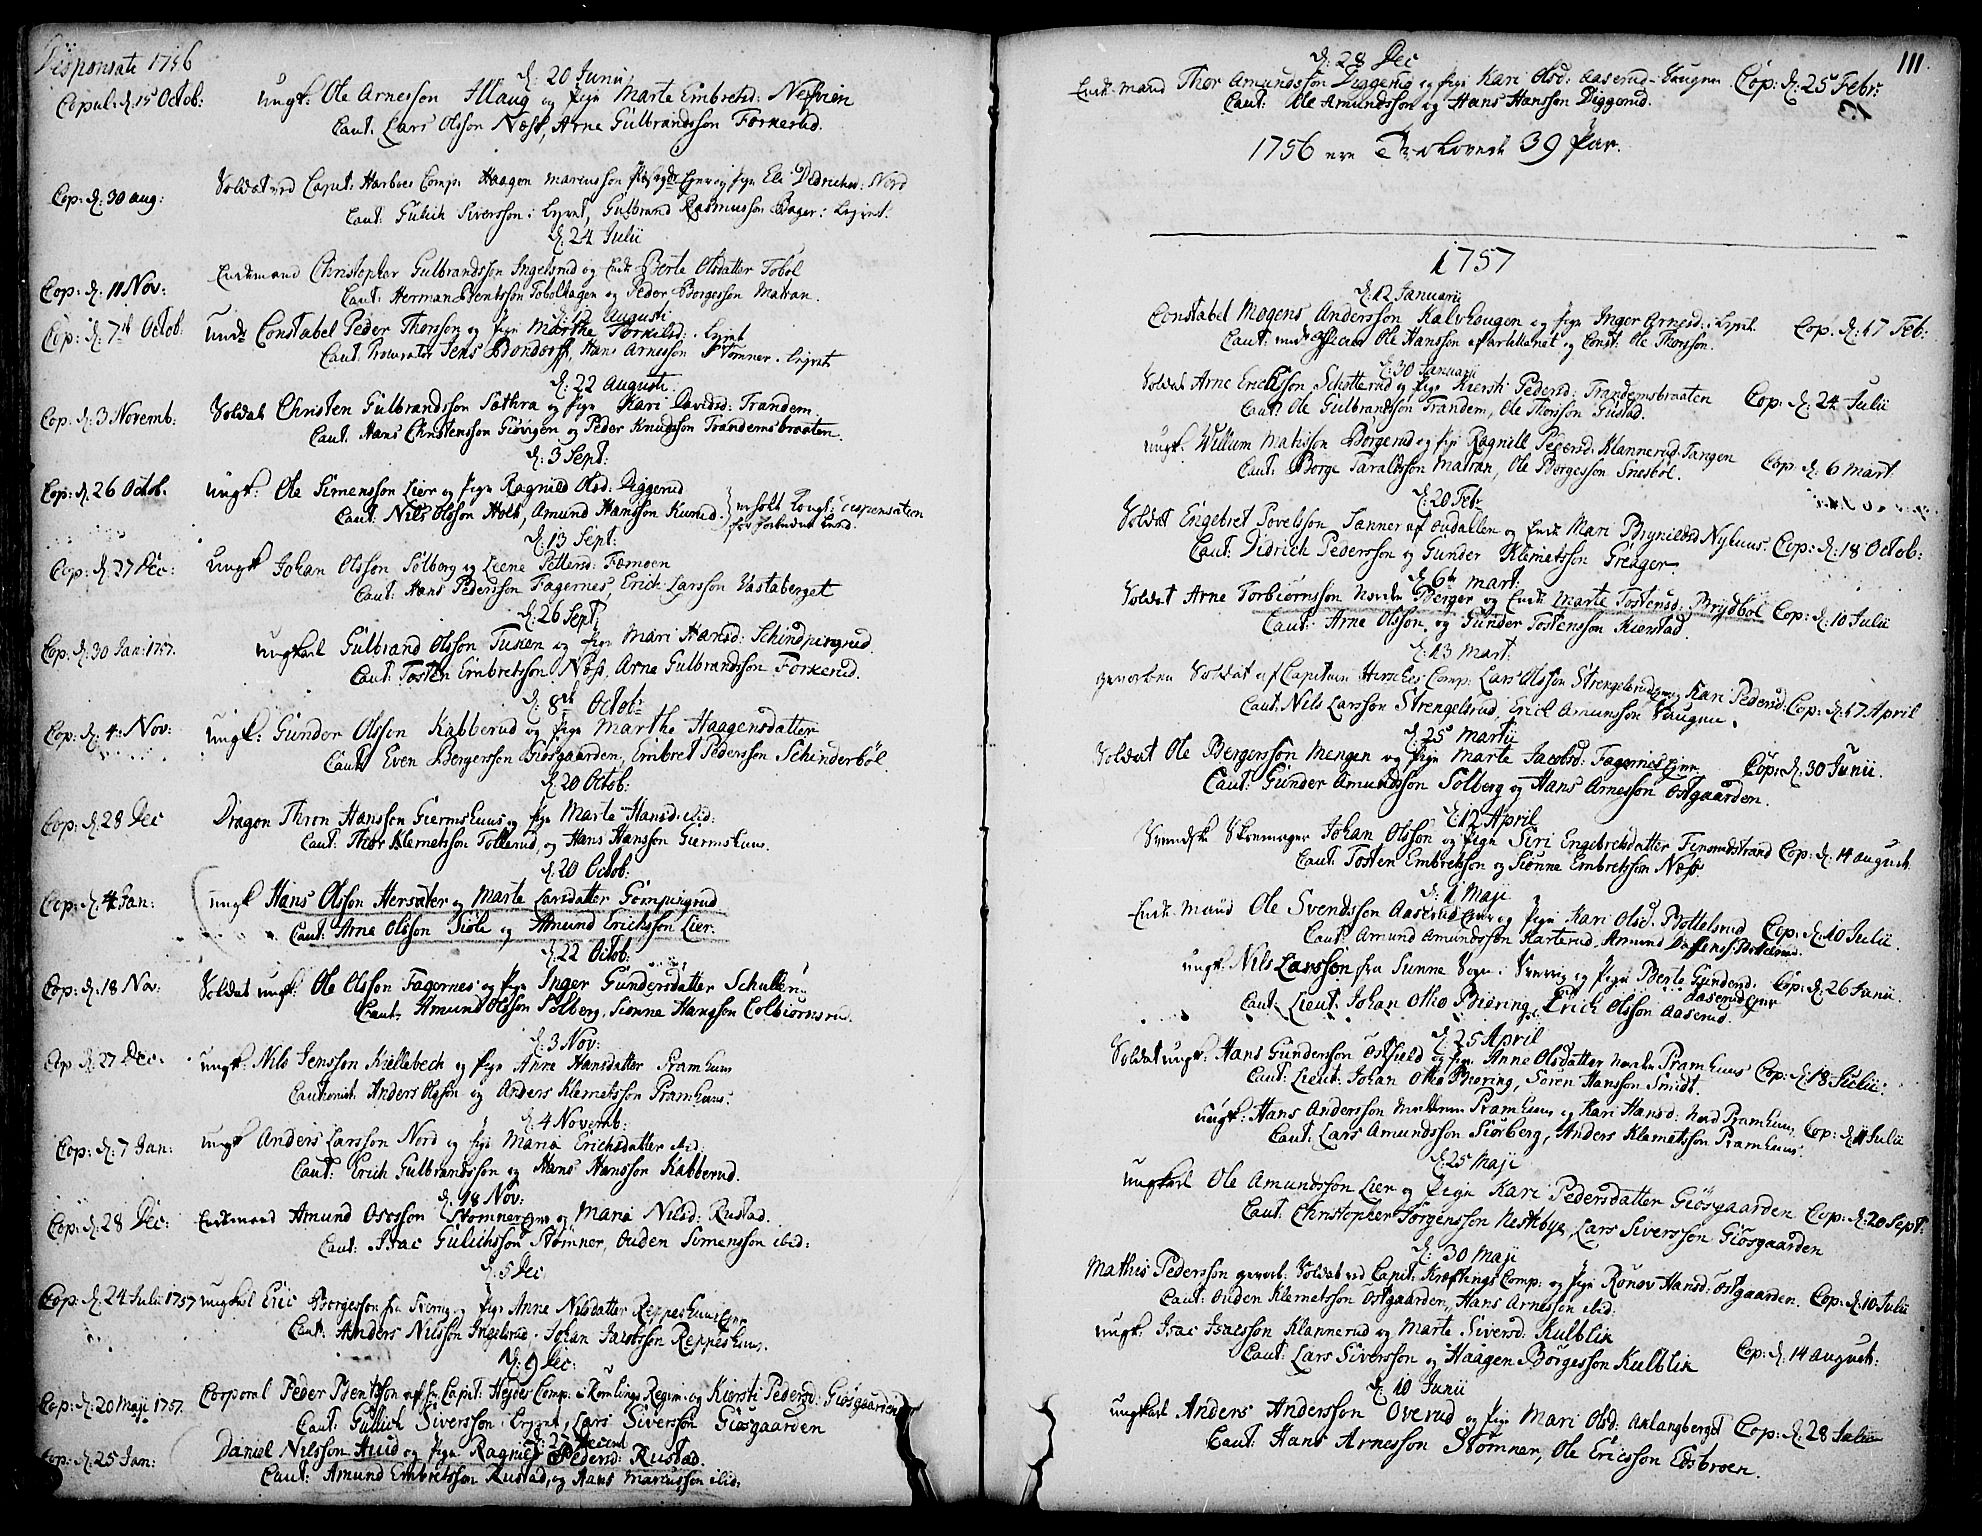 Desponsati 1756
d: 20 Junii
Copul: d. 15 Octob: Ungk: Ole Arnesson Illaug og Pige Marte Embretsd: Nefvien
Caut. Lars Olsson Næss, Arne Gulbrandsson Forkerud.
Cop: d: 30 aug: Soldat ved Capit: Harboes Comp: Haagen Marcusson og Pige Eli Didrichsd: Nord
Caut: Gulich Siversson: Eynt, Gulbrand Rasmusson Bager: Eynt.
d: 24 Julii
Cop: d. 11 Nov: Enckemand Christopher Gulbrandsson Ingelsrud og Enck Berte Olsdatter Tobol
Caut: Herman Bentsson Tobolhagen og Peder Borgesson Matran.
d: 12 Augusti
Cop: d. 7de Octob: Constabel Peder Thorsson og Pige Marthe Torkilsd:
Caut. Procurator Jens Bondorff, Hans Arnesson Stømner.
d: 22 Augusti
Cop: d. 3 Novemb: Soldat Christen Gulbrandsson Sæthra og Pige Kari Davidsd: Trandem
Caut. Hans Christensson Giøvigen og Peder Knudsson Trandemsbraaten.
d: 3 Sept:
Cop: d. 26 Octob. Ungk: Ole Simensson Lier og Pige Ragnild Olsd: Diggerud
Caut: Nils Olsson Holt, Amund Hansson Kurud. dispensation
d: 13 Sept:
Cop: d. 27 Dec: Ungk Johan Olsson Solberg og Leene Pettersd: Fæmoen
Caut: Hans Pedersson Fagernes, Erick Larsson Vastaberget
d: 26 Sept.
Cop: d. 30 Jan: 1757. Ungkarl Gulbrand Olsson Tusen og Pige Mari Hansd: Schindpungrud
Caut: Tosten Embretsson Næss, Arne Gulbrandsson Forkerud.
d. 8de Octob:
Cop: d. 4: Nov: Ungk: Gunder Olsson Kabberud og Pige Marthe Haagensdatter
Caut: Even Bergersson Giøsgaarden, Embret Pedersson Schinderbøl.
d. 20 Octob:
Cop: d: 28 Dec Dragon Thron Hansson Giermshuus og Pige Marte Hansd: ibid:
Caut: Thor Klemetsson Tollerud og Hans Hansson Giermshuus.
d. 20 Octob:
Cop: d. 4 Jan: Ungk Hans Olsson Hersæter og Marte Larsdatter Gompungrud
Caut: Arne Olsson Siøli og Amund Erichsson Lier.
d: 22 Octob:
Cop: d. 18 Nov: Soldat ungk: Ole Olsson Fagernes og Pige Inger Gundersdatter Schulle
Caut: Amund Olsson Solberg, Siønne Hansson Colbiørnsrud.
d: 3 Nov:
Cop: d: 27 Dec. Ungk: Nils Jensson Kiellebeck og Pige Anne Hansdatter Pramhuus
Cautionist: Anders Olsson og Anders Klemetsson Pramhuus.
d: 4 Novemb:
Cop: d. 7 Jan: Ungk Anders Larsson Nord og Pige Maria Erichsdatter ibid:
Caut: Erich Gulbrandsson og Hans Hansson Kabberud.
d. 18 Nov:
Cop: d. 28 Dec: Enckemand Amund Ososson Stømner og Maria Nilsd: Rustad.
Caut: Isac Gulichsson Stømner, Ouden Simensson ibid:
d. 5 Dec.
Cop: d. 24 Julii 1757 ungkarl Eric Borgesson fra Sverrig og Pige Anne Nilsdatter Reppeshuus
Caut: Anders Nilsson Ingelsrud, Johan Jacobsson Reppeshuus.
d. 9 Dec:
Cop: d. 20 Maji 1757. Corporal Peder Bentsson af Capit: Heydes Comp: Romlings Regim: og Kiersti Pedersd: Giøsgaarden
Caut. Gullich Siversson, Lars Siversson Giøsgaarden
d: 27 Decemb
Cop: d. 25 Jan: Daniel Nilsson Huid og Pige Ragnild Pedersd: Rustad.
Caut: Amund Embretsson Rustad, og Hans Marcusson ibid:
111.
d: 28 Dec
Enck: mand Thor Amundsson Diggerud og Pige Kari Olsd: Aaserud Haugen Cop: d: 25 Febr.
Caut: Ole Amundsson og Hans Hansson Diggerud.
1756 ere Trolovede 39 Par.
1757
d. 12 Januarii
Constabel Mogens Andersson Kalvhougen og Pige Inger Arnesd: Cop: d: 17 Feb:
Caut. under Officeer Ole Hansson af artilleriet og Const: Ole Thorsson.
d. 30 Januarii
Soldat Arne Ericksson Schotterud og Pige Kiersti Pedersd: Trandemsbraaten Cop: d: 24 Julii
Caut: Ole Gulbrandsson Trandem, Ole Thorsson Gustad.
Ungk: Willum Matisson Borgerud og Pige Ragnild Pedersd: Klannerud-Tangen Cop: d: 6 Mart.
Caut: Borge Taraldsson Matran, Ole Borgesson Snesbøl.
d. 20 Febr
Soldat Engebret Povelsson Tanner af Oudallen og Enck Mari Brynildsd Nyhuus. Cop: d: 18 Octob:
Caut: Didrich Pedersson og Gunder Klemetsson Greager.
d. 6te Mart:
Soldat Arne Torbiørnsson Nordre Berger og Enck Marte Tostensd: Brydbøl Cop: d: 10 Julii
Caut: Arne Olsson og Gunder Tostensson Kierstad.
d. 13 Mart:
Gevorben Soldat af Capitain Hirsches Comp: Lars Olsson Strengelsrud og Kari Pedersd. Cop: d. 17 April
Caut. Nils Larsson Strengelsrud, Erick Amunsson Haugen.
d. 25 Martii
Soldat Ole Bergersson Mengen og Pige Marte Jacobsd: Fagernes Cop: d: 30 Junii.
Caut: Gunder Amundsson Solberg og Hans Arnesson Ostgaarden.
d. 12 April
Svendsk Skoemager Johan Olsson og Pige Siri Engebretsdatter Finsrudstrand Cop: d. 14 august.
Caut: Tosten Embretsson og Siønne Embretsson Næss.
d: 1 Maji
Enck: Mand Ole Svendsson Aaserud og Pige Kari Olsd: Bottelsrud Cop: d: 10 Julii.
Caut: Amund Amundsson Karterud, Amund Bottelsrud.
Ungk. Nils Larsson fra Sunne Sogn i Sverrig og Pige Berte Gundersd. Aaserud Cop: d. 26 Junii.
Caut: Lieut. Johan Otto Biering, Erich Olsson Aaserud.
d. 25 April
Soldat ungk: Hans Gundersson Ostfield og Pige Anne Olsdatter Nordre Pramhuus Cop: d. 18 Julii:
Caut: Lieut: Johan Otto Biering, Søren Hansson Smidt.
Ungk: Hans Andersson Mellem Pramhuus og Kari Hansd: Nord Pramhuus. Cop: d: 11 Julii
Caut. Lars Amundsson Siørberg, Anders Klemetsson Pramhuus.
d. 25 Maji
Ungkarl Ole Amundsson Lier og Pige Kari Pedersdatter Giøsgaarden Cop: d. 20 Sept:
Caut: Christopher Torgensson Nestebye, Lars Siversson Giøsgaarden
d: 30 Maji
Mathis Pedersson gevorb: Soldat ved Capit: Kreftings Comp: og Pige Ronov Hansd: Ostgaarden. Cop: d. 10 Julii
Caut: Ouden Klemetsson Ostgaarden, Hans Arnesson ibid.
Ungk: Isac Isacsson Klannerud og Marte Siversd: Kulblik Cop: d. 14 august:
Caut: Lars Siversson og Haagen Børgesson Kulblik
d: 10 Junii
Ungkarl Anders Andersson Overud og Pige Mari Olsd: Aaslangberget Cop: d. 28 Julii
Caut: Hans Arnesson Stømner, Ole Ericsson Eidsbroen.